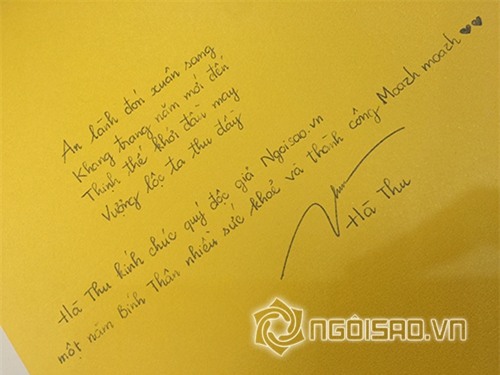 An lành đón xuân sang
Khang trang năm mới đến
Thịnh thế khởi đầu may
Vượng lộc ta thu đầy
Hà Thu kính chúc quý độc giả Ngoisao.vn
một năm Bính Thân nhiều sức khoẻ và thành công Moazh moazh
Hà Thu
NGÔISAO.VN